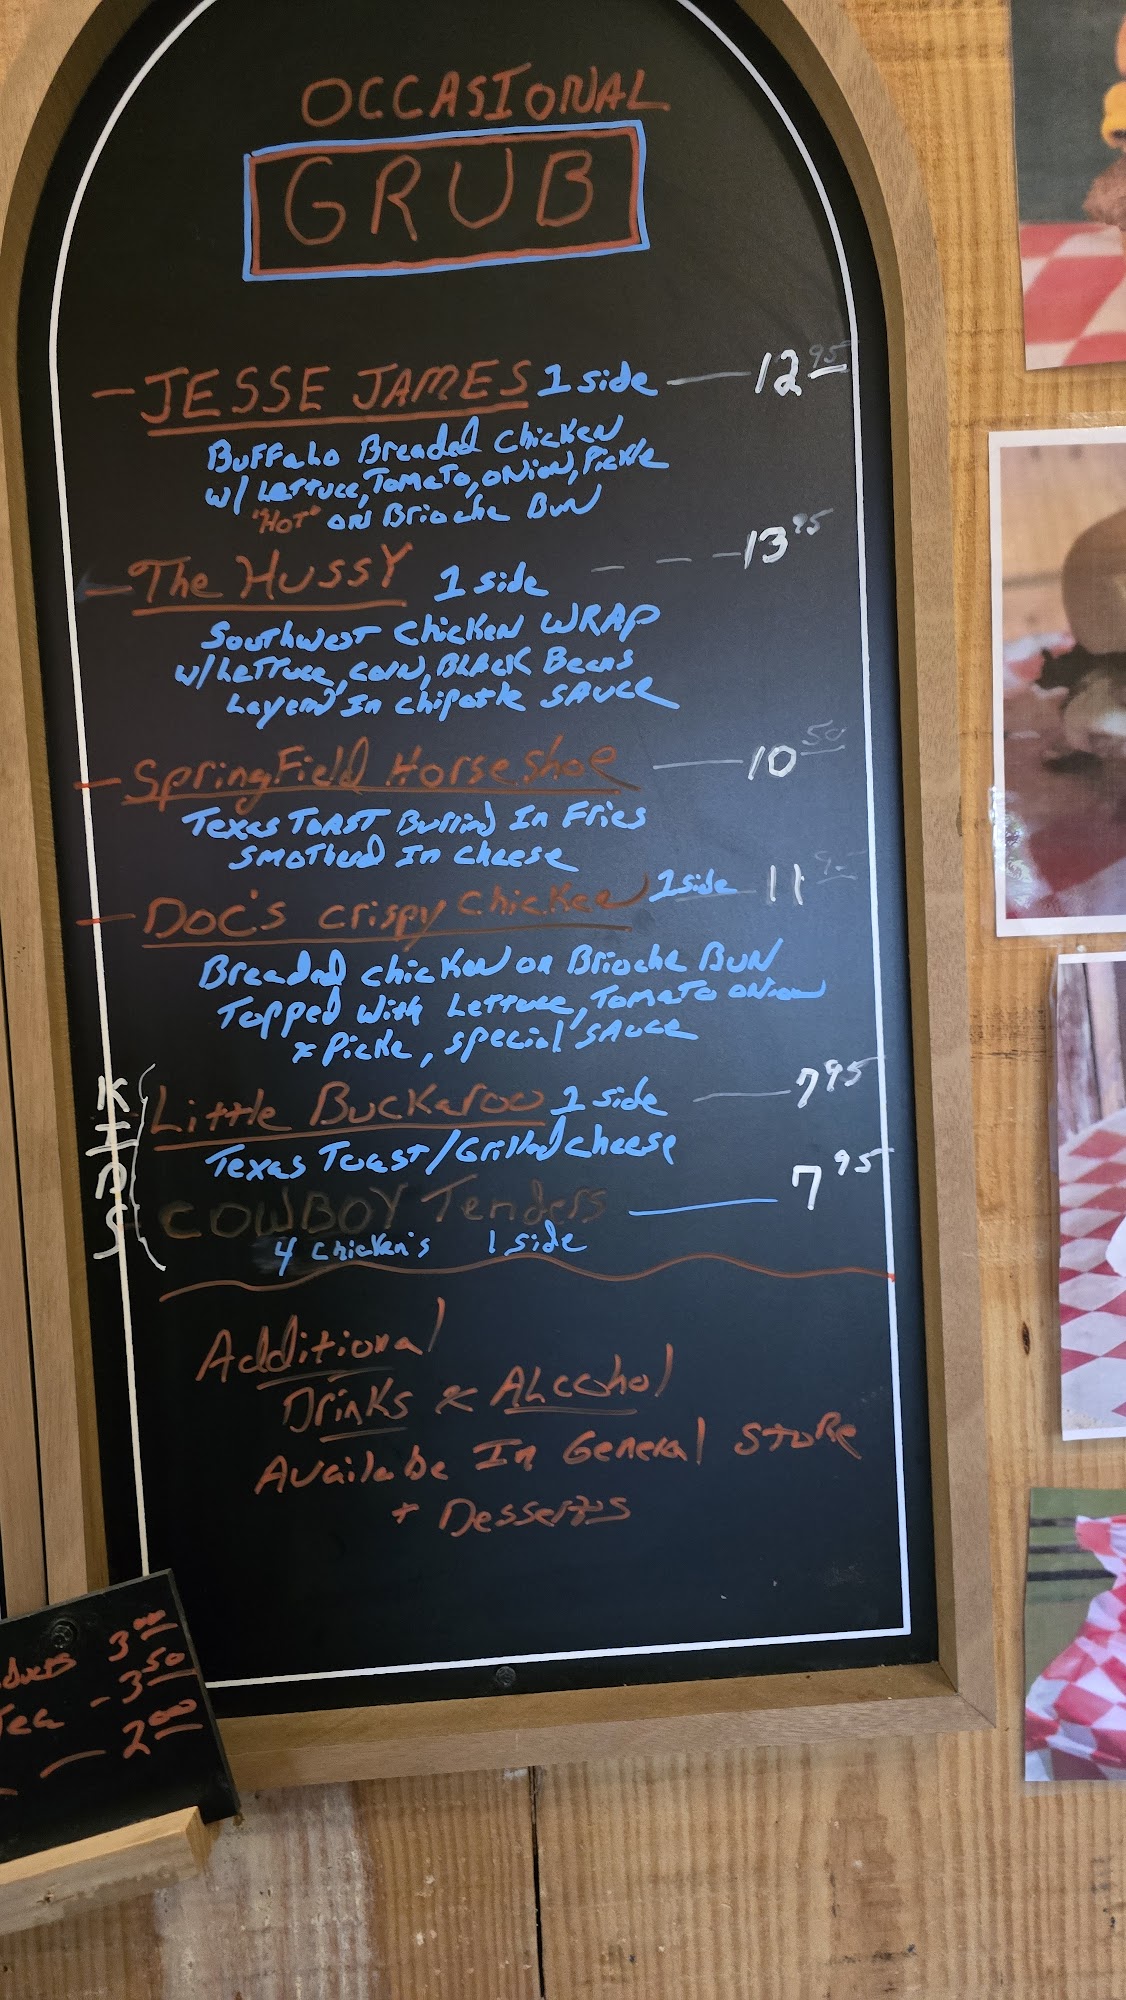 OCCASIONAL
GRUB
- JESSE JAMES 1 side — 12 95
Buffalo Breaded Chicken
w/ Lettuce, Tomato, onion, Pickle
"HOT" on Brioche Bun
- The HUSSY 1 side - - - 13 95
Southwest Chicken WRAP
w/ Lettuce, corn, Black Beans
Layered In chipotle SAUCE
- Springfield Horseshoe — 10 50
Texas TOAST Burried In Fries
Smothered In Cheese
- Doc's crispy chicken 1 side 11
Breaded chicken on Brioche BUN
Topped with Lettuce, Tomato onion
& Pickle, special SAUCE
KIDS
Little Buckaroo 1 side — 7 95
Texas Toast/Grilled cheese
COWBOY Tenders — 7 95
4 chicken's 1 side
Additional
Drinks & ALcohol
Available In General Store
+ Desserts
3 00
Tea - 3 50
— 2 00